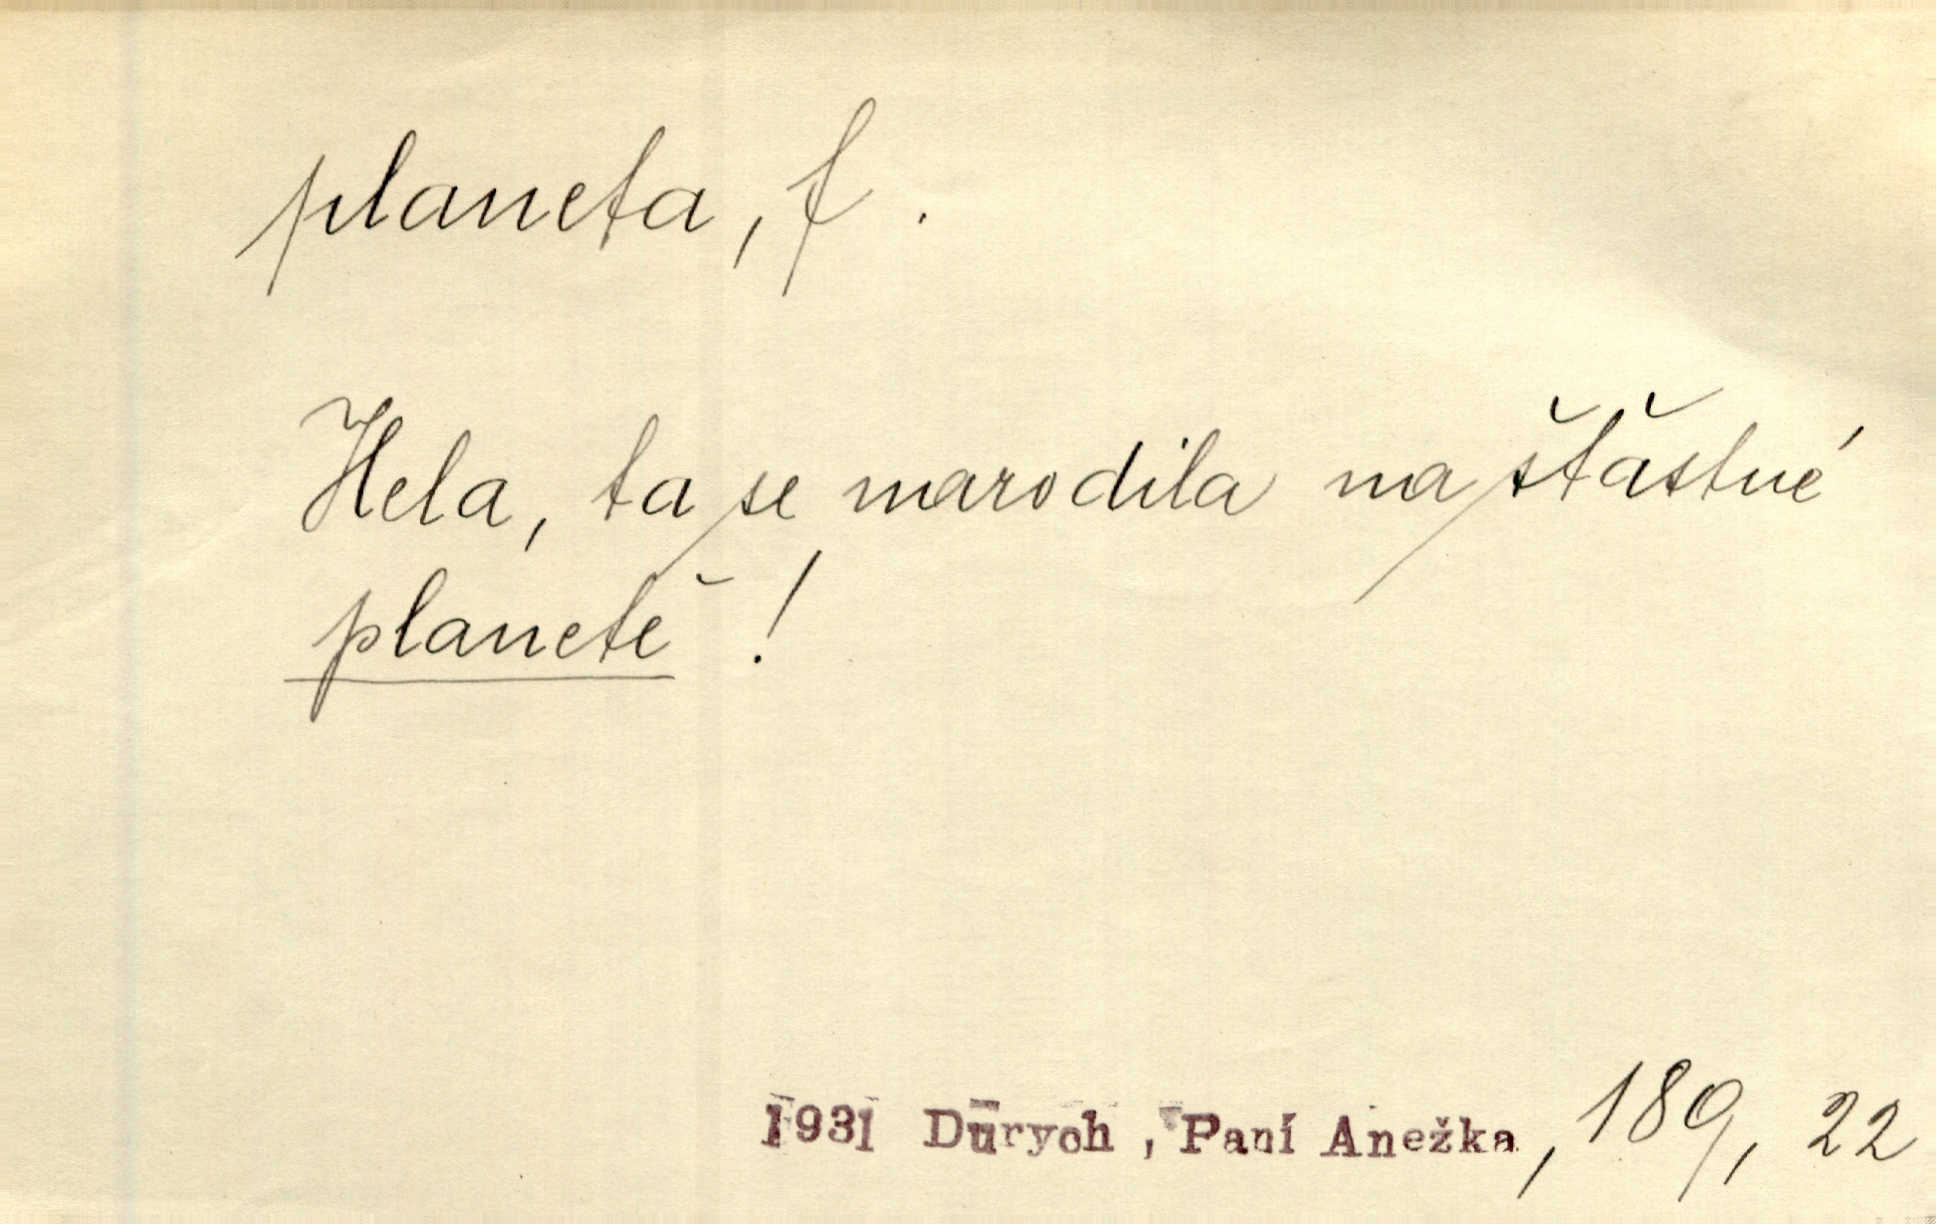 planeta, f.
Hela, ta se narodila na šťastné
planetě!
1931 Durych, Paní Anežka, 189, 22